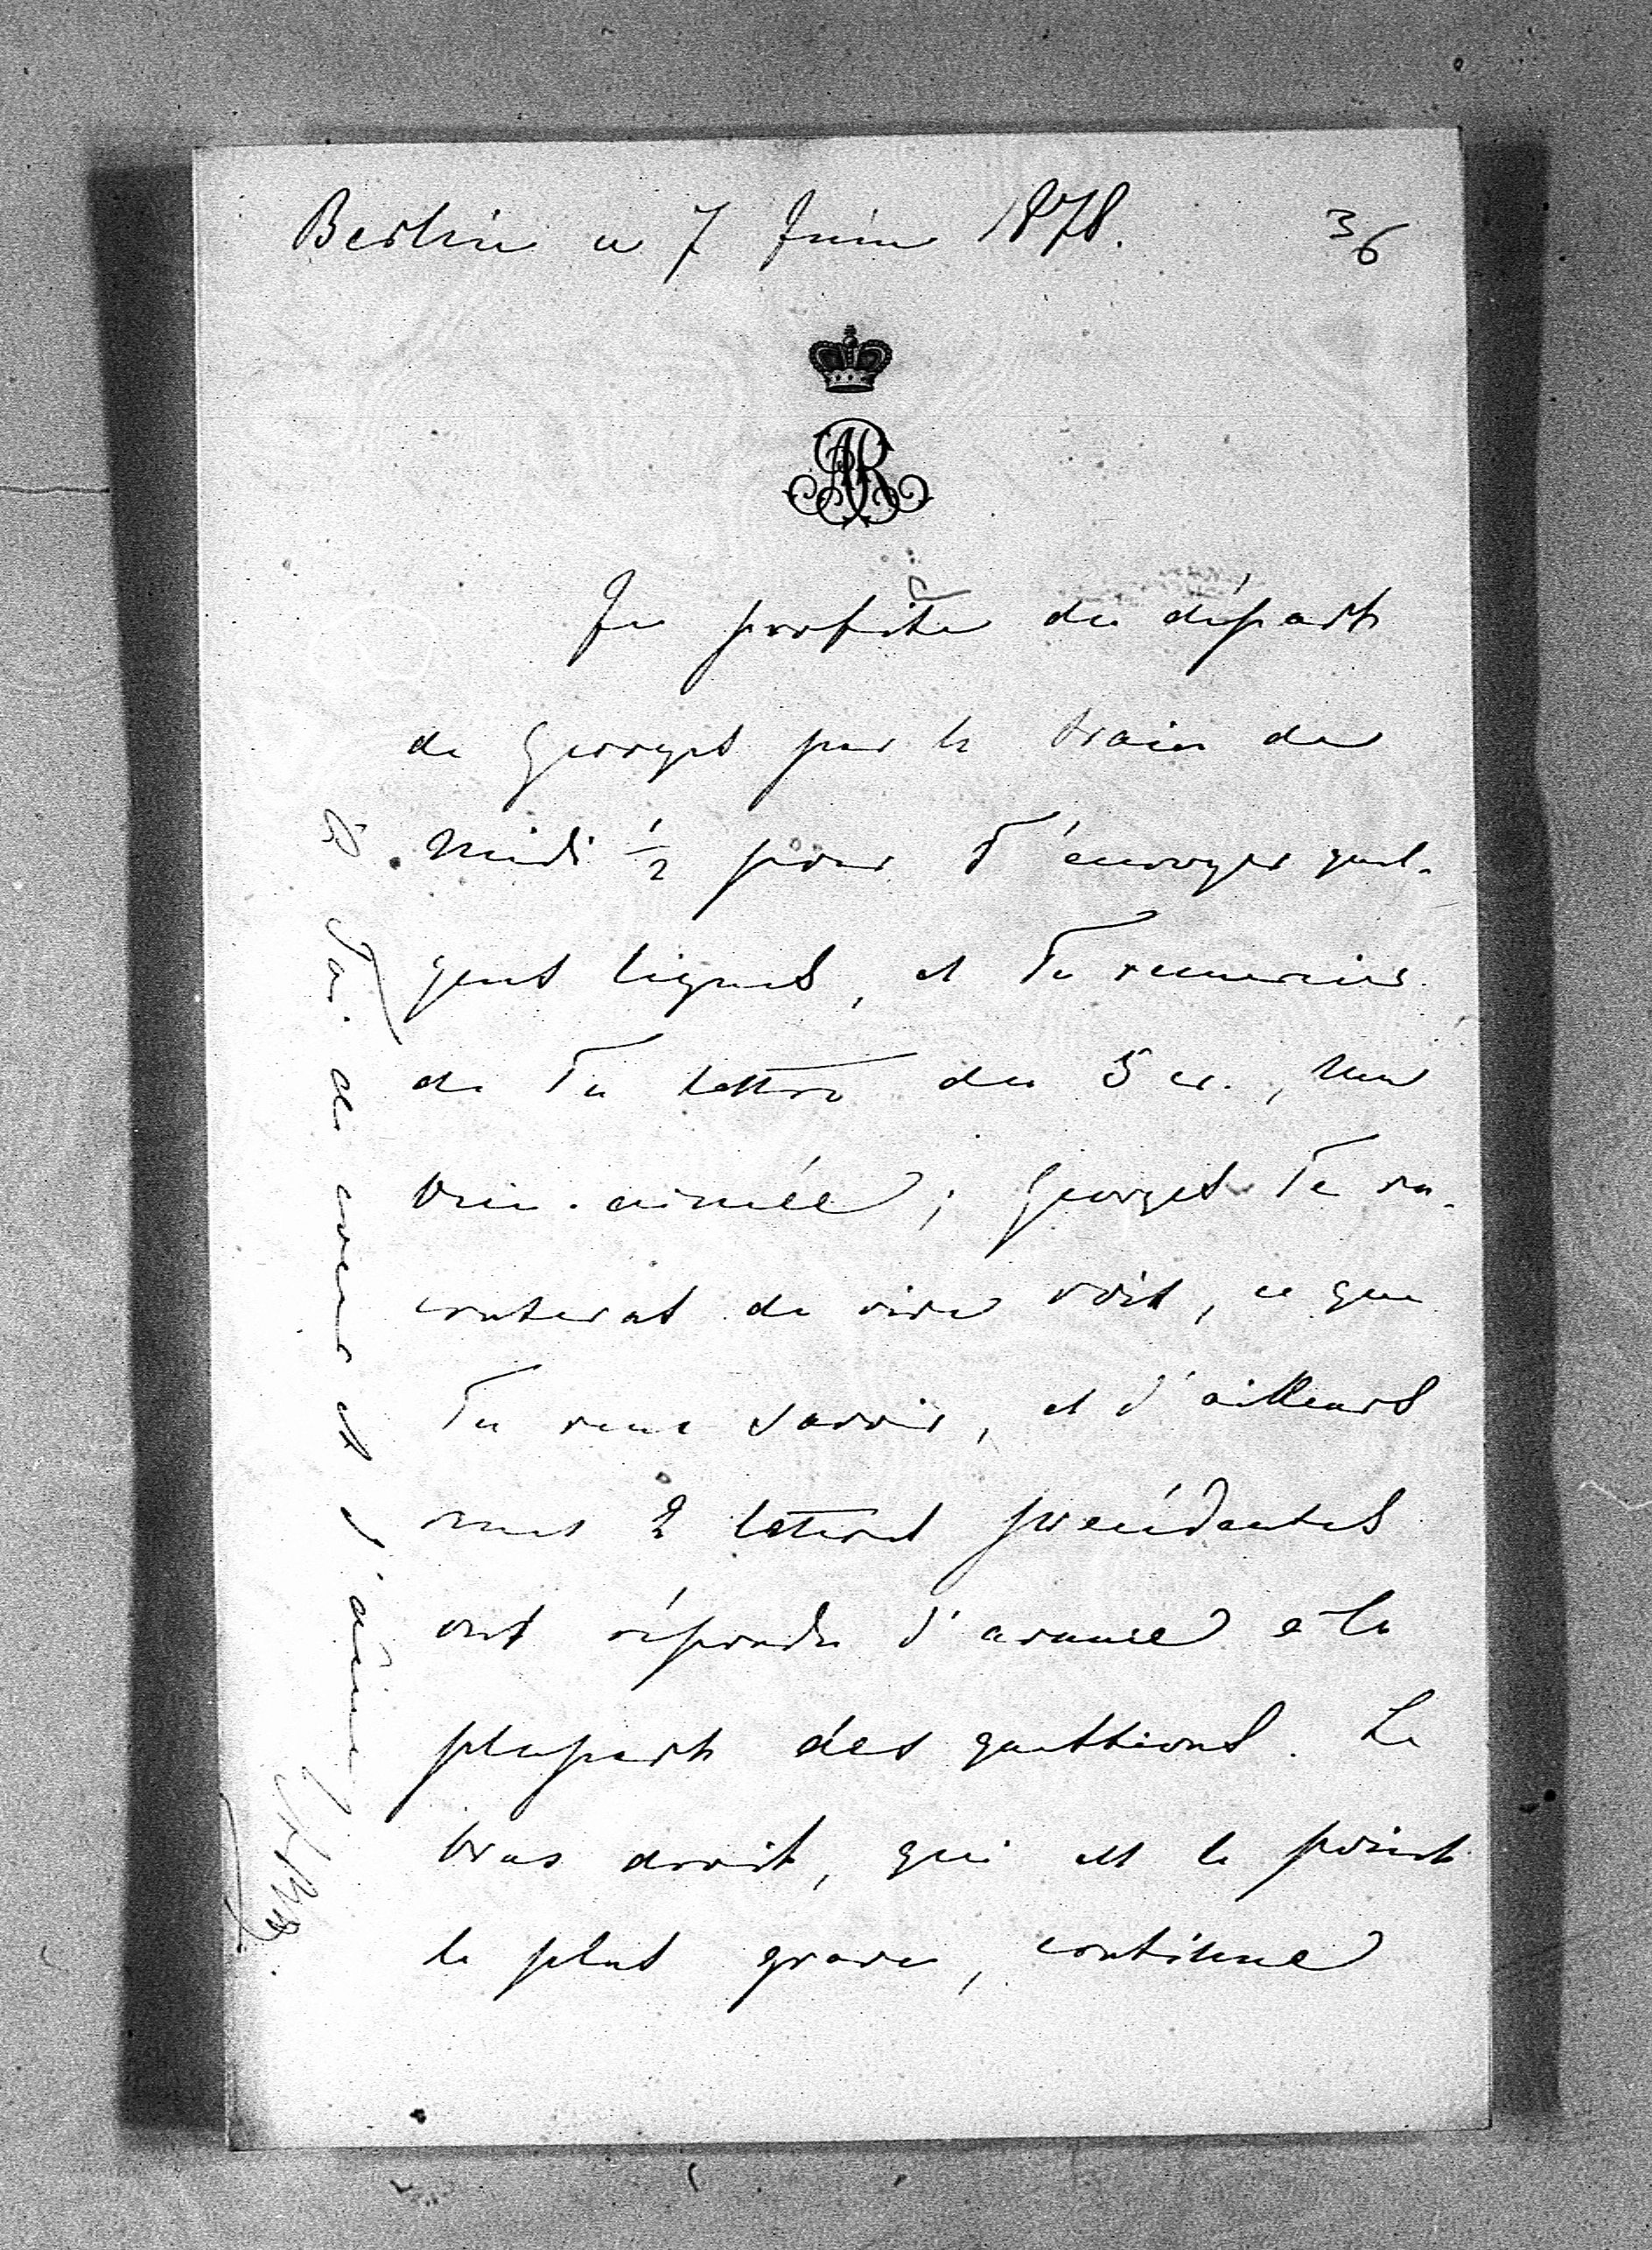 Berlin ce 7 Juin 1878.
36
AR
Je profite du départ
de Georges par le train de
midi 1/2 pour T'envoyer quel-
ques lignes, et Te remercier
de Ta lettre du 5 cr., ma
bien-aimée; Georges Te ra-
conterat de vive voix, ce que
Tu veux savoir, et d'ailleurs
mes 2 lettres precédentes
ont répondu d'avance à la
plupart des questions. Le
bras droit, qui est le point
le plus grave, continue
à Toi de coeur et d'âme